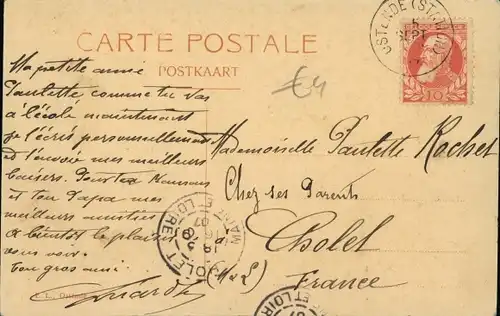 CARTE POSTALE
POSTKAART
OSTENDE (STATION)
5
SEPT
10
€4
Ma petite amie
Paulette comme tu vas
à l'école maintenant
je t'écris personnellement
et t'envoie mes meilleurs
baisers. Pour ta Maman
et ton Papa mes
meilleures amitiés
à bientôt le plaisir
vous voir.
Ton gros ami.
Mademoiselle Paulette Rochet
Chez ses Parents
Cholet
(M & L)
France
CHOLET
MAINE ET LOIRE
07
ET LOIRE